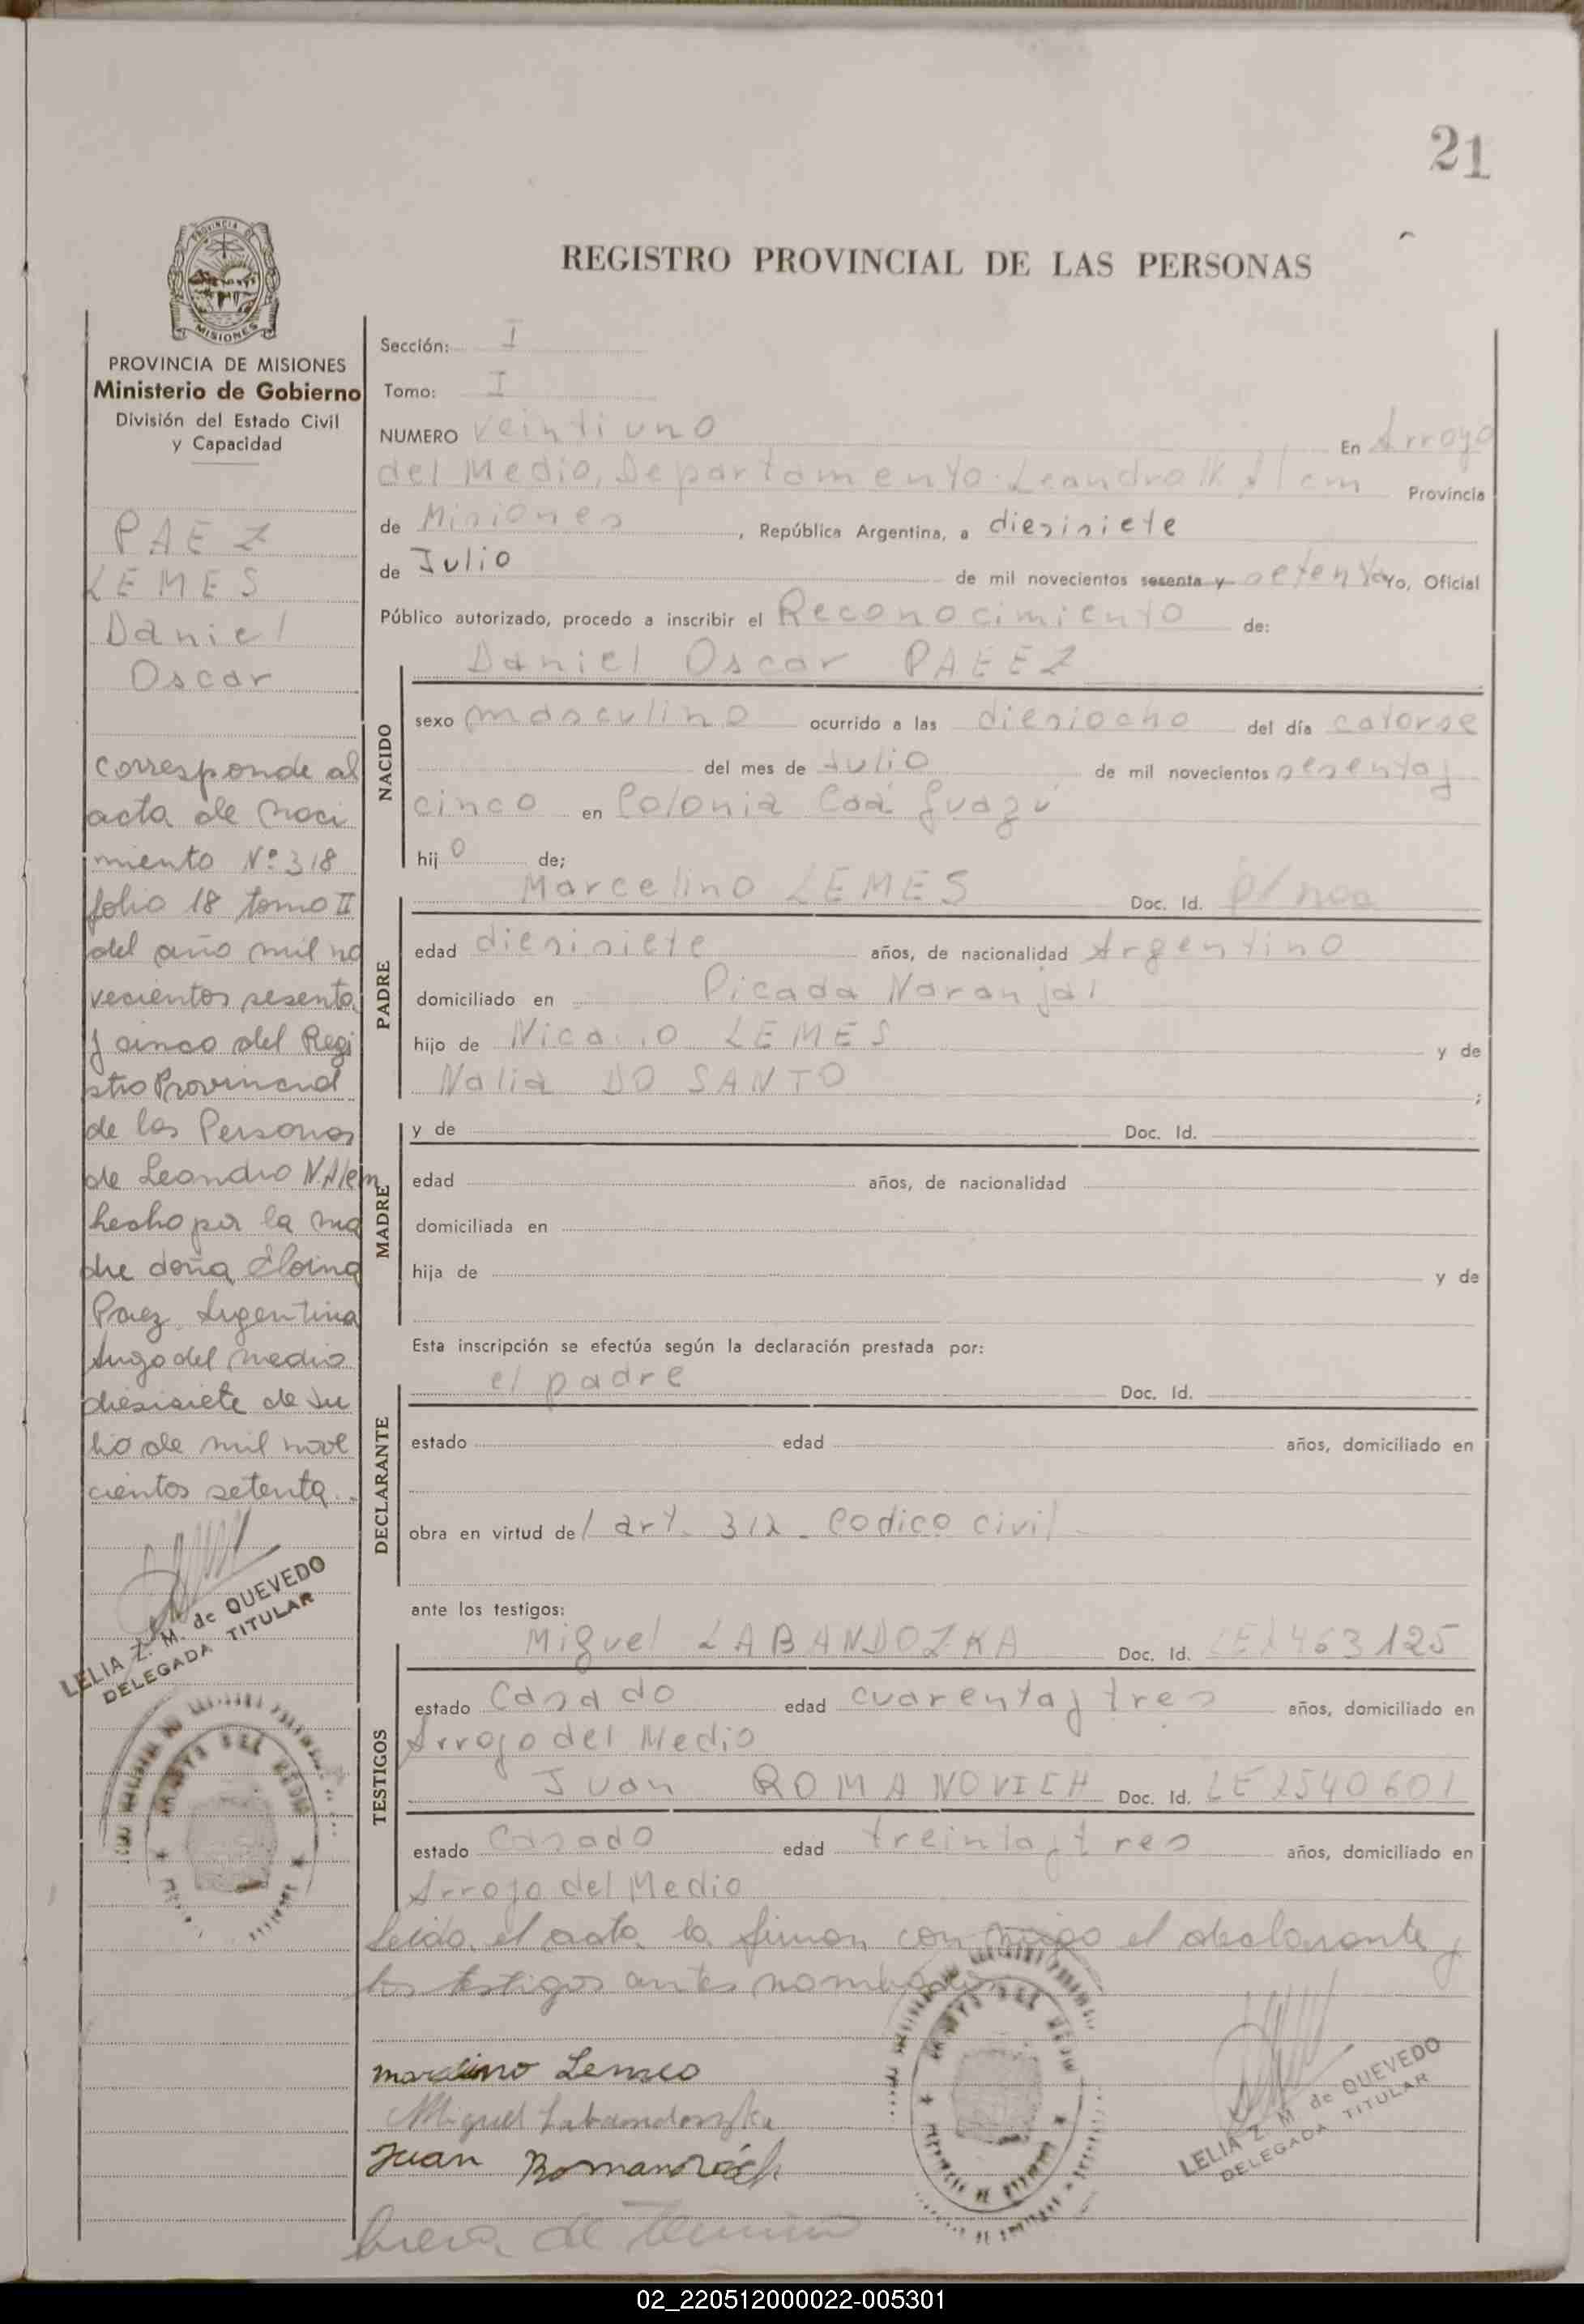 21
REGISTRO PROVINCIAL DE LAS PERSONAS
PROVINCIA DE
MISIONES
PROVINCIA DE MISIONES
Ministerio de Gobierno
División del Estado Civil
y Capacidad
PAEZ
LEMES
Daniel
Oscar
corresponde al
acta de naci
miento Nº 318
folio 18 tomo II
del año mil no
vecientos sesenta
y cinco del Regi
stro Provincial
de las Personas
de Leandro N. Alem
hecho por la ma
dre doña Eloina
Paez. Argentina
del medio
diesisiete de Ju
lio de mil nove
cientos setenta.
LELIA Z. M. de QUEVEDO
DELEGADA TITULAR
Sección: I
Tomo: I
NUMERO veintiuno En Arroyo
del Medio, Departamento Leandro N Alem Provincia
de Misiones, República Argentina, a diesisiete
de Julio de mil novecientos sesenta y setenta Yo, Oficial
Público autorizado, procedo a inscribir el Reconocimiento de:
Daniel Oscar PAEEZ
NACIDO
sexo masculino ocurrido a las diesiocho del día catorse
del mes de Julio de mil novecientos sesenta y
cinco en Colonia Caá Guazú
hijo de;
PADRE
Marcelino LEMES Doc. Id.
edad diesisiete años, de nacionalidad Argentino
domiciliado en Picada Naranjal
hijo de LEMES y de
Nalia DO SANTO ;
MADRE
y de Doc. Id.
edad años, de nacionalidad
domiciliada en
hija de y de
Esta inscripción se efectúa según la declaración prestada por:
DECLARANTE
el padre Doc. Id.
estado edad años, domiciliado en
obra en virtud del art. 312 - Codico civil -
ante los testigos:
TESTIGOS
Miguel LABANDOZKA Doc. Id. LE 463125
estado Casado edad cuarenta y tres años, domiciliado en
Arroyo del Medio
Juan ROMANOVICH Doc. Id. LE 2540601
estado Casado edad treinta y tres años, domiciliado en
Arroyo del Medio
Leida el acta la firman con migo el declarante y
los testigos antes nombrados
marcelino Lemes
Miguel Labandoszka
Juan Romanovich
LELIA Z. M de QUEVEDO
DELEGADA TITULAR
fuera de termino
02_220512000022-005301